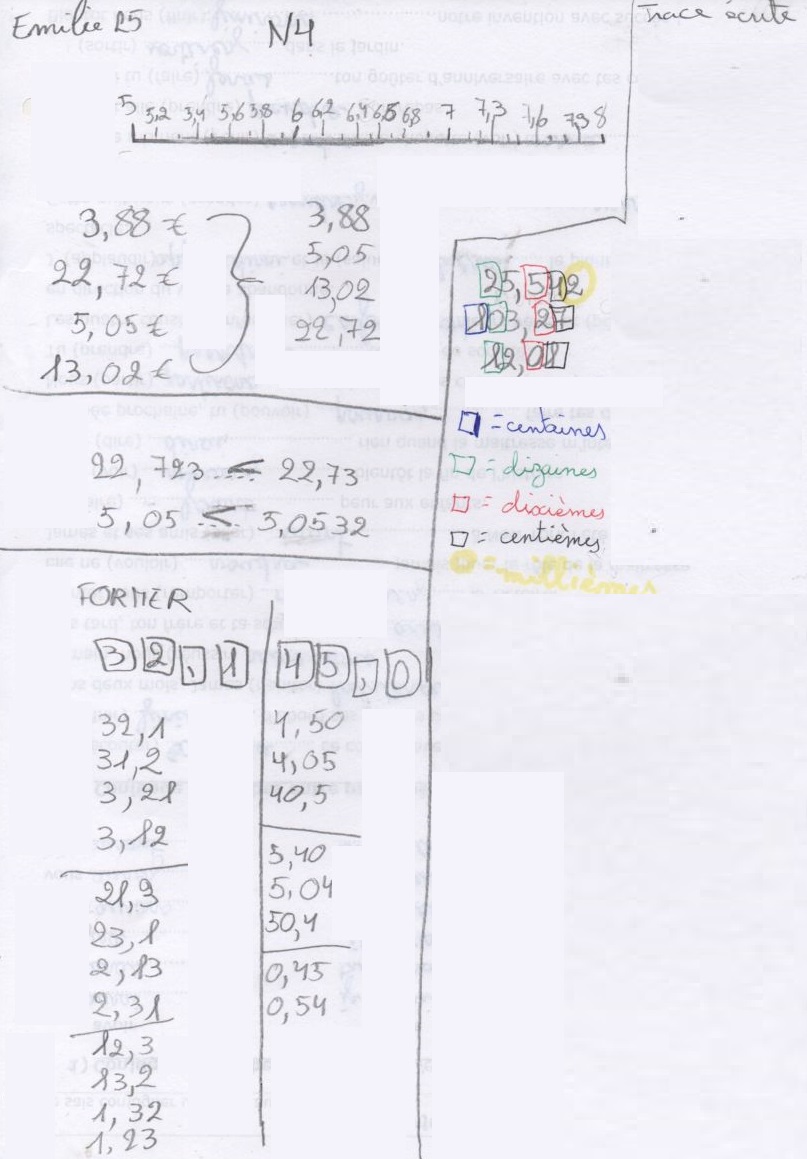 Emilie 25
N4
Trace écrite
5 5,2 5,4 5,6 5,8 6 6,2 6,4 6,5 6,8 7 7,3 7,6 7,8 8
3,88 €
22,72 €
5,05 €
13,02 €
3,88
5,05
13,02
22,72
25,542
103,27
12,01
= centaines
= dizaines
= dixièmes
= centièmes
= millièmes
22,723 < 22,73
5,05 < 5,0532
FORMER
3 2 , 1
4 5 , 0
32,1
31,2
3,21
3,12
21,3
23,1
2,13
2,31
12,3
13,2
1,32
1,23
4,50
4,05
40,5
5,40
5,04
50,4
0,45
0,54